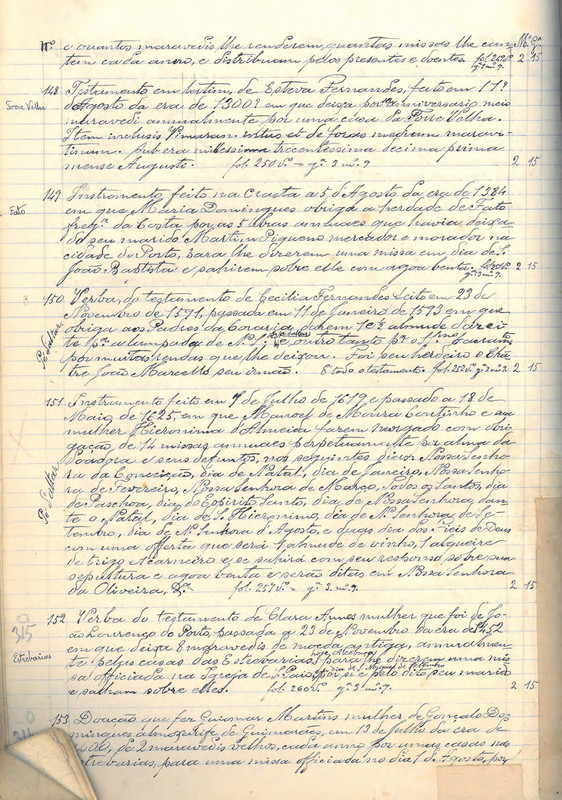 Nº. e quantos maravedis lhe renderem, quantas missas lhe can- Mº. Gª.
tem cada anno, e distribuam pelos presentes e doentes. fol. 2 15
148 Testamento em latim, de Esteva Fernandes, feito em 11 d'
Torre Velha Agosto da era de 1300? em que deixa por anniversario meio
maravedi annualmente por uma casa da Torre Velha.
Item inclusis
tinum. sub era millessima trecentissima decima prima
mense Augusto. fol. 250 Vº. = gª. 3 mº. 9 2 15
149 Instrumento feito na Crasta a 5 d'Agosto da era de 1384
Fato em que Maria Domingues obriga a herdade de Fato
fregª. da Costa por as 5 libras annuaes que havia deixa-
do seu marido Martim Pigueno mercador e morador na
cidade do Porto, para lhe dizerem uma missa em dia de S.
João Baptista e sahirem sobre elle com agoa benta. 2 15
150 Verba do testamento de Cecilia Fernandes feito em 23 de
Novembro de 1571, passada em 11 de Janeiro de 1573 em que
obriga aos Padres da Coraria, darem 1 e ½ almude d'azei-
te pª. a lampada de N. S. e outro tanto pª. o
por muitas rendas que lhe deixou. Foi seu herdeiro o Chan-
tre João Marcello seu irmão. E todo o testamento. fol. 252 Vº. gª. 3 mº. 9 2 15
151 Instrumento feito em 7 de Julho de 1619 e passado a 18 de
Maio de 1625, em que Manoel de Moura Coutinho e sua
mulher Hieronima d'Almeida fazem morgado com obri-
gação, de 14 missas annuaes perpetuamente por alma da
e seus defuntos, nos seguintes dias: Nossa Senho-
ra da Conceição, dia de Natal, dia de Janeiro, Nossa Senho-
ra de Fevereiro, Nossa Senhora de Março, Todos os Santos, dia
de Paschoa, dia do Espirito Santo, dia de Nossa Senhora, dan-
te o Natal, dia de S. Hieronimo, dia de Nª. Senhora de Se-
tembro, dia de Nª. Senhora d'Agosto, e duas dia dos Fieis de Deus
com uma offerta que será 1 almude de vinho, 1 alqueire
de trigo, 1 carneiro e se sahirá com seu responso sobre sua
sepultura e agoa benta e serão ditas em Nossa Senhora
da Oliveira, &ª. fol. 257 = gª. 3. mº. 9. 2 15
152 Verba do testamento de Clara Annes mulher que foi de Jo-
315 ão Lourenço do Porto, passada a 23 de Novembro da era de 1452
em que deixa 8 maravedis de moeda antiga, annualmen-
Estrebarias te pelas casas das Estrebarias, para lhe dizerem uma mis-
sa officiada na Igreja de S. Paio, por si e pelo dito seu marido
e saham sobre elles. fol. 260 Vº. gª. 3 mº. 9. 2 15
153 Doação que fez Guiomar Martins mulher de Gonçalo Do-
mingues almoxarife de Guimarães, em 13 de Julho da era de
de 2 maravedis velhos, cada anno por umas casas nas
Estrebarias, para uma missa officiada no dia 1 de Agosto, por